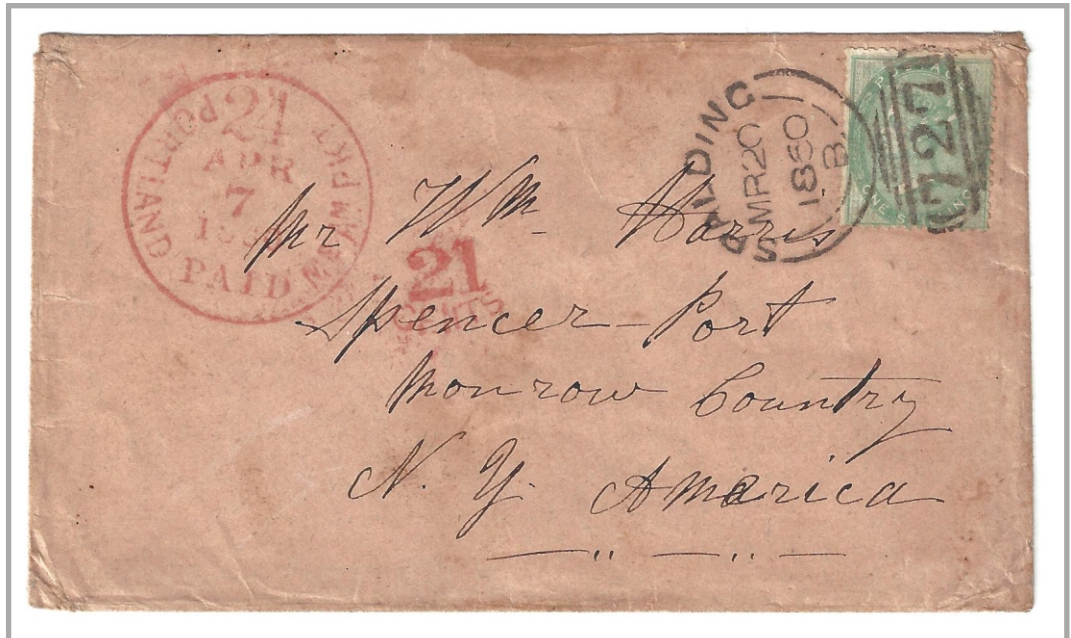 PKT
PORTLAND
24
APR
7
PAID
SPALDING
MR20
1860
B
727
ONE
21
CENTS
Mr Wm Harris
Spencer-Port
Monrow Country
N. Y. America